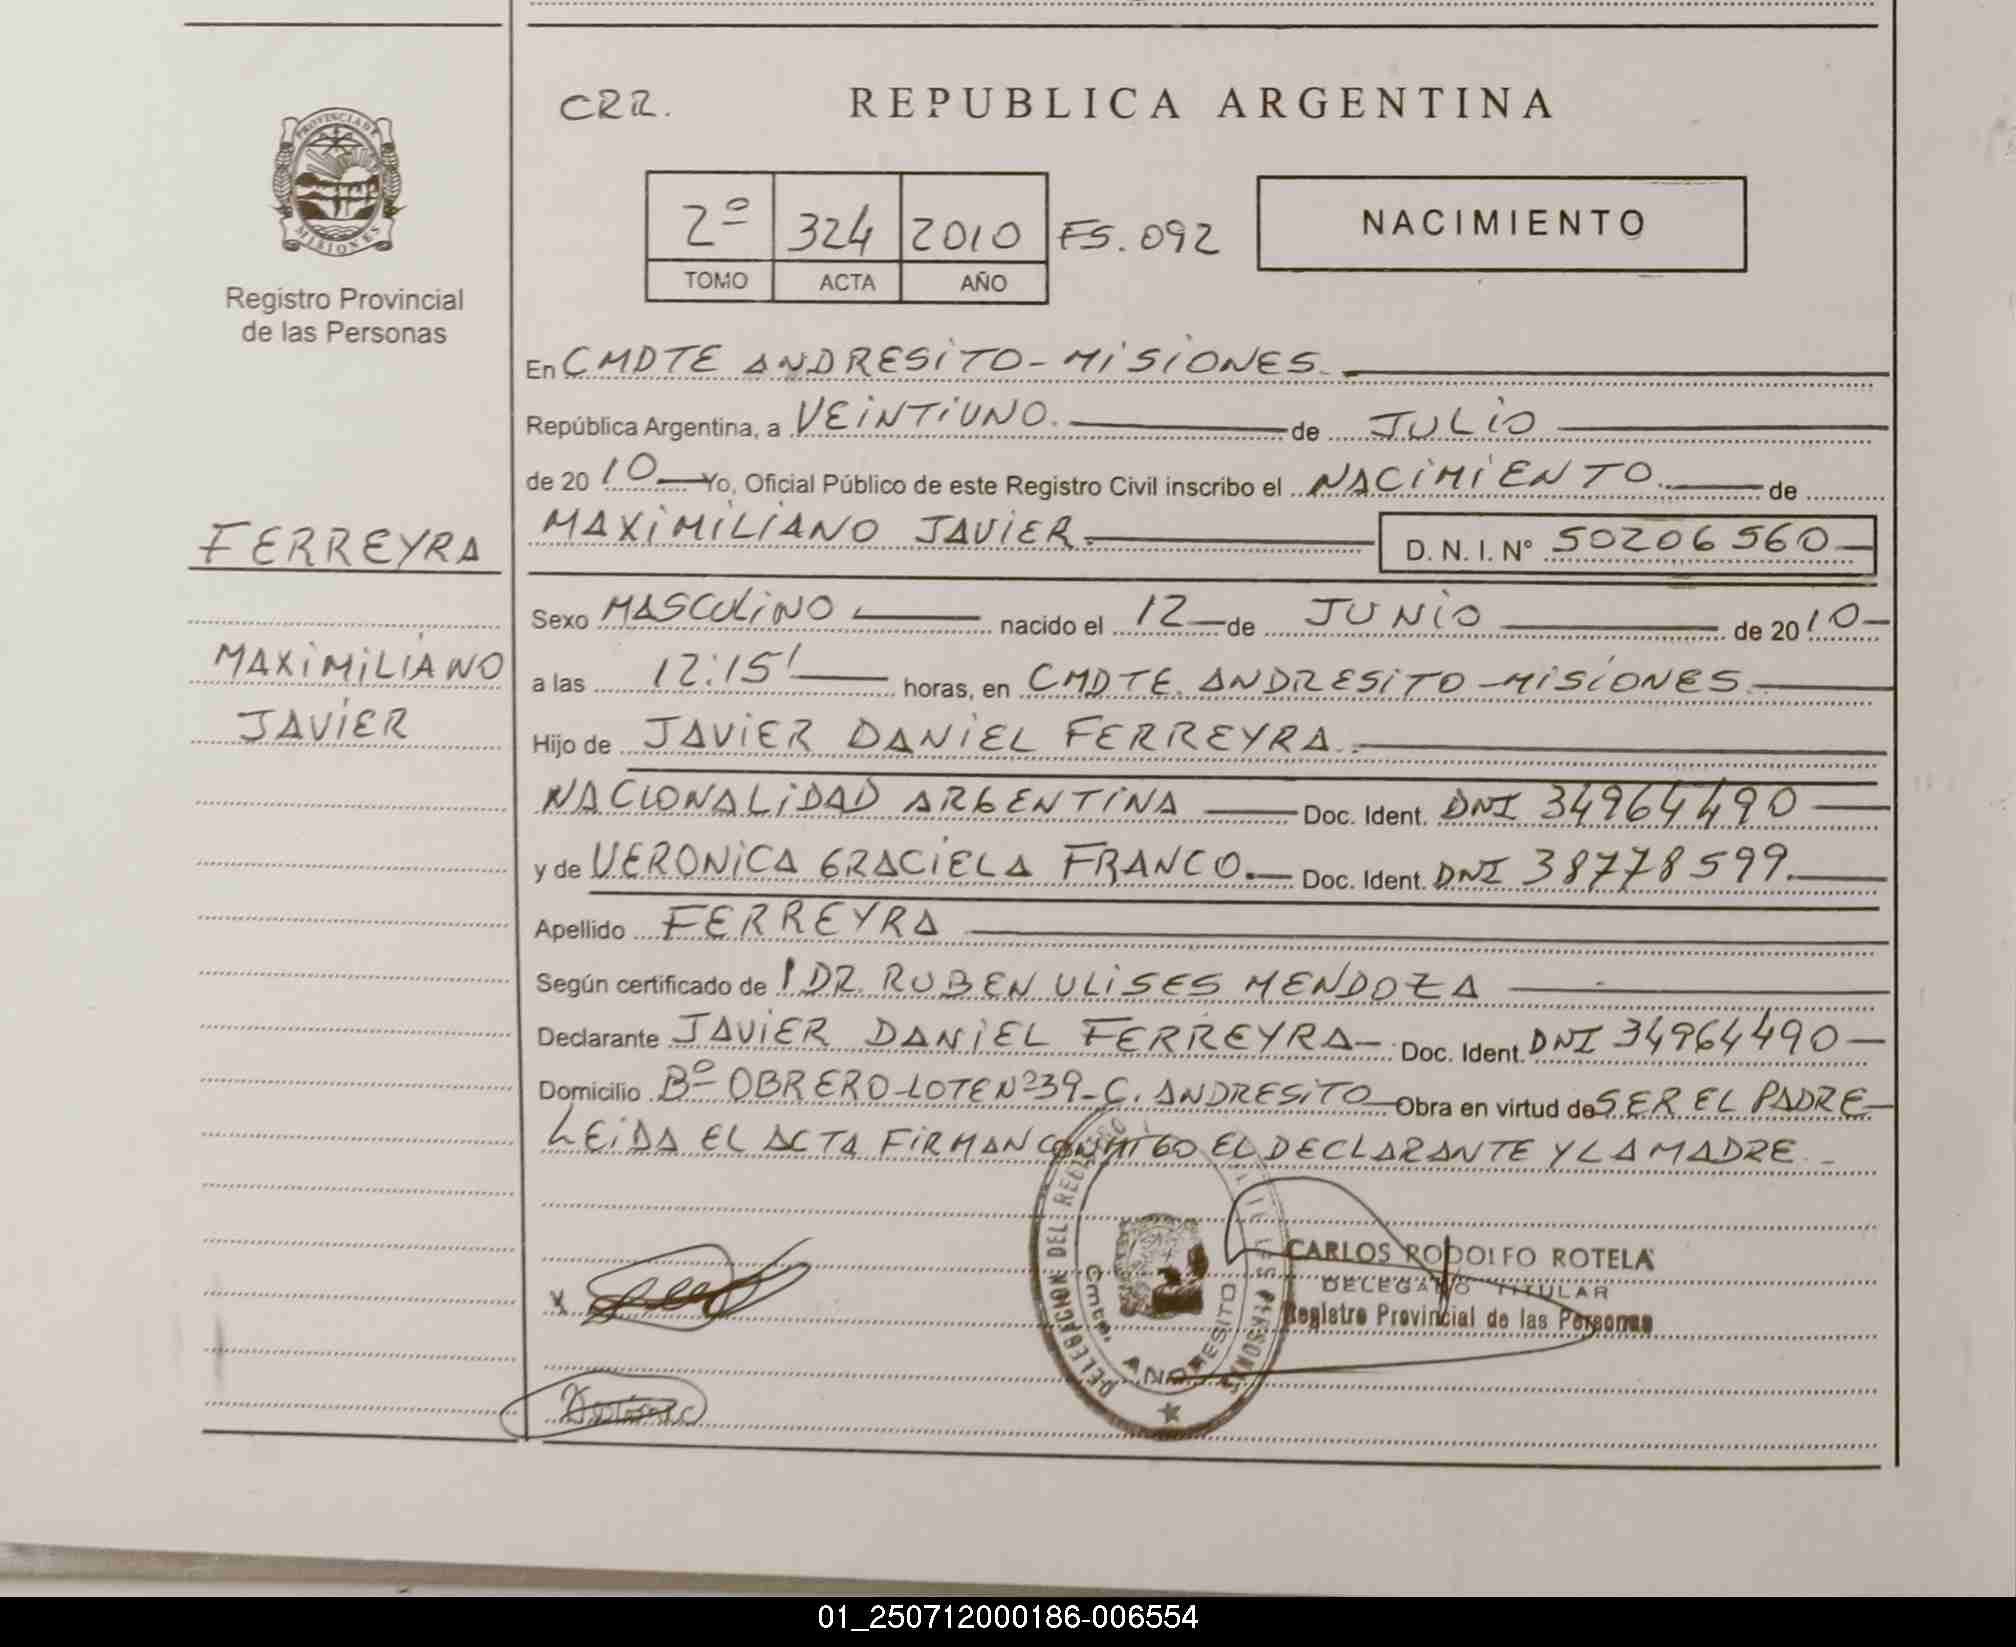 CRR. REPUBLICA ARGENTINA
PROVINCIA DE
MISIONES
Registro Provincial
de las Personas
2º 324 2010 FS. 092
TOMO ACTA AÑO
NACIMIENTO
En CMDTE ANDRESITO - MISIONES.
República Argentina, a VEINTIUNO. de JULIO
de 20 10 Yo, Oficial Público de este Registro Civil inscribo el NACIMIENTO. de
MAXIMILIANO JAVIER. D. N. I. Nº 50206560
FERREYRA
MAXIMILIANO
JAVIER
Sexo MASCULINO nacido el 12 de JUNIO de 20 10
a las 12:15' horas, en CMDTE. ANDRESITO - MISIONES
Hijo de JAVIER DANIEL FERREYRA.
NACIONALIDAD ARGENTINA Doc. Ident. DNI 34964490
y de VERONICA GRACIELA FRANCO. Doc. Ident. DNI 38778599.
Apellido FERREYRA
Según certificado de DR. RUBEN ULISES MENDOZA
Declarante JAVIER DANIEL FERREYRA Doc. Ident. DNI 34964490
Domicilio Bº OBRERO - LOTE Nº 39 - C. ANDRESITO Obra en virtud de SER EL PADRE
LEIDA EL ACTA FIRMAN CONMIGO EL DECLARANTE Y LA MADRE
DELEGACION DEL PERSONAS
Cmte. ANDRESITO
CARLOS RODOLFO ROTELA
DELEGADO TITULAR
Registro Provincial de las Personas
X
01_250712000186-006554